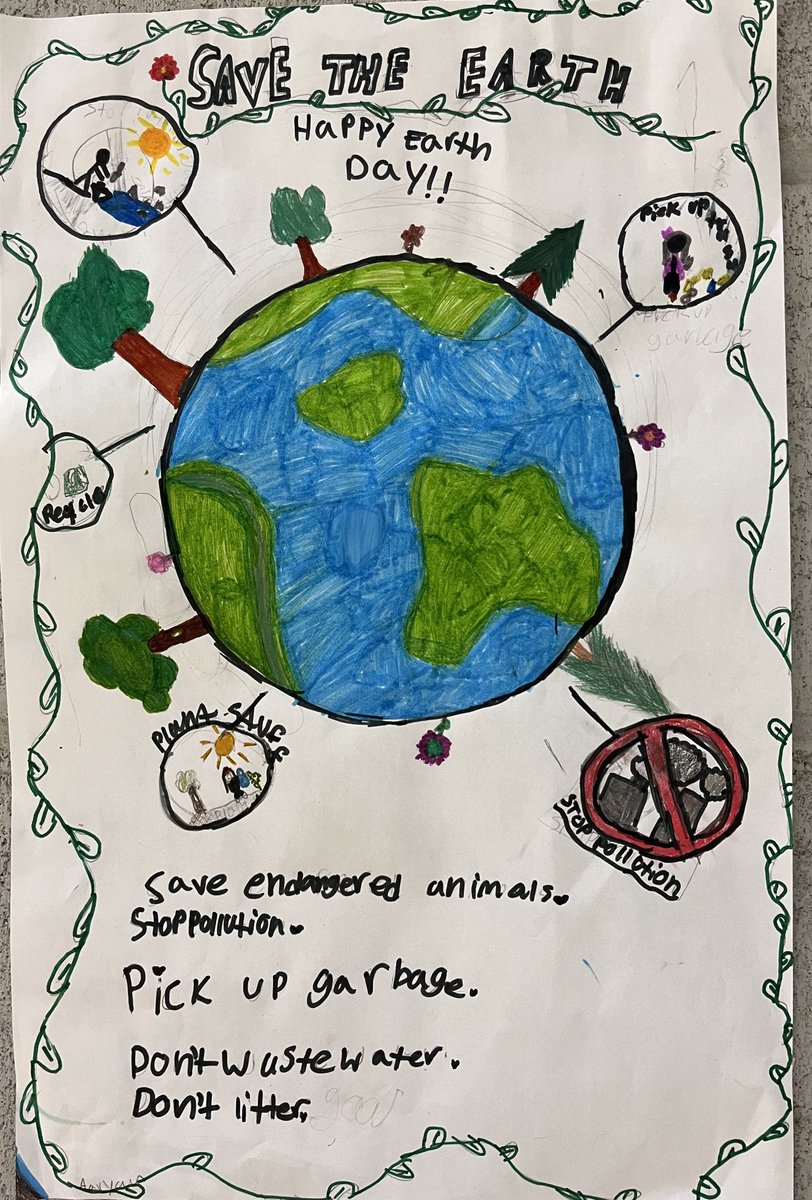 SAVE THE EARTH
Happy Earth
Day!!
Pick up
Pick up
garbage
Recycle
Plant stuff
Stop pollution
Save endangered animals.
Stop pollution.
Pick up garbage.
Don't waste water.
Don't litter.